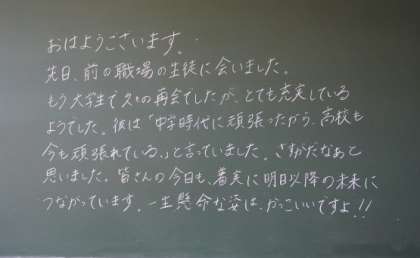 おはようございます。
先日、前の職場の生徒に会いました。
もう大学生で久々の再会でしたが、とても充実している
ようでした。彼は「中学時代に頑張ったから、高校も
今も頑張れている。」と言っていました。さすがだなあと
思いました。皆さんの今日も、着実に明日以降の未来に
つながっています。一生懸命な姿は、かっこいいですよ!!